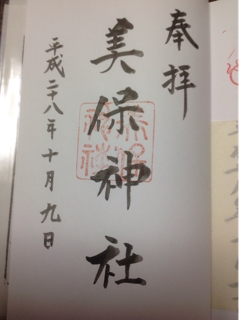 奉拝
美保神社
平成二十八年十月九日